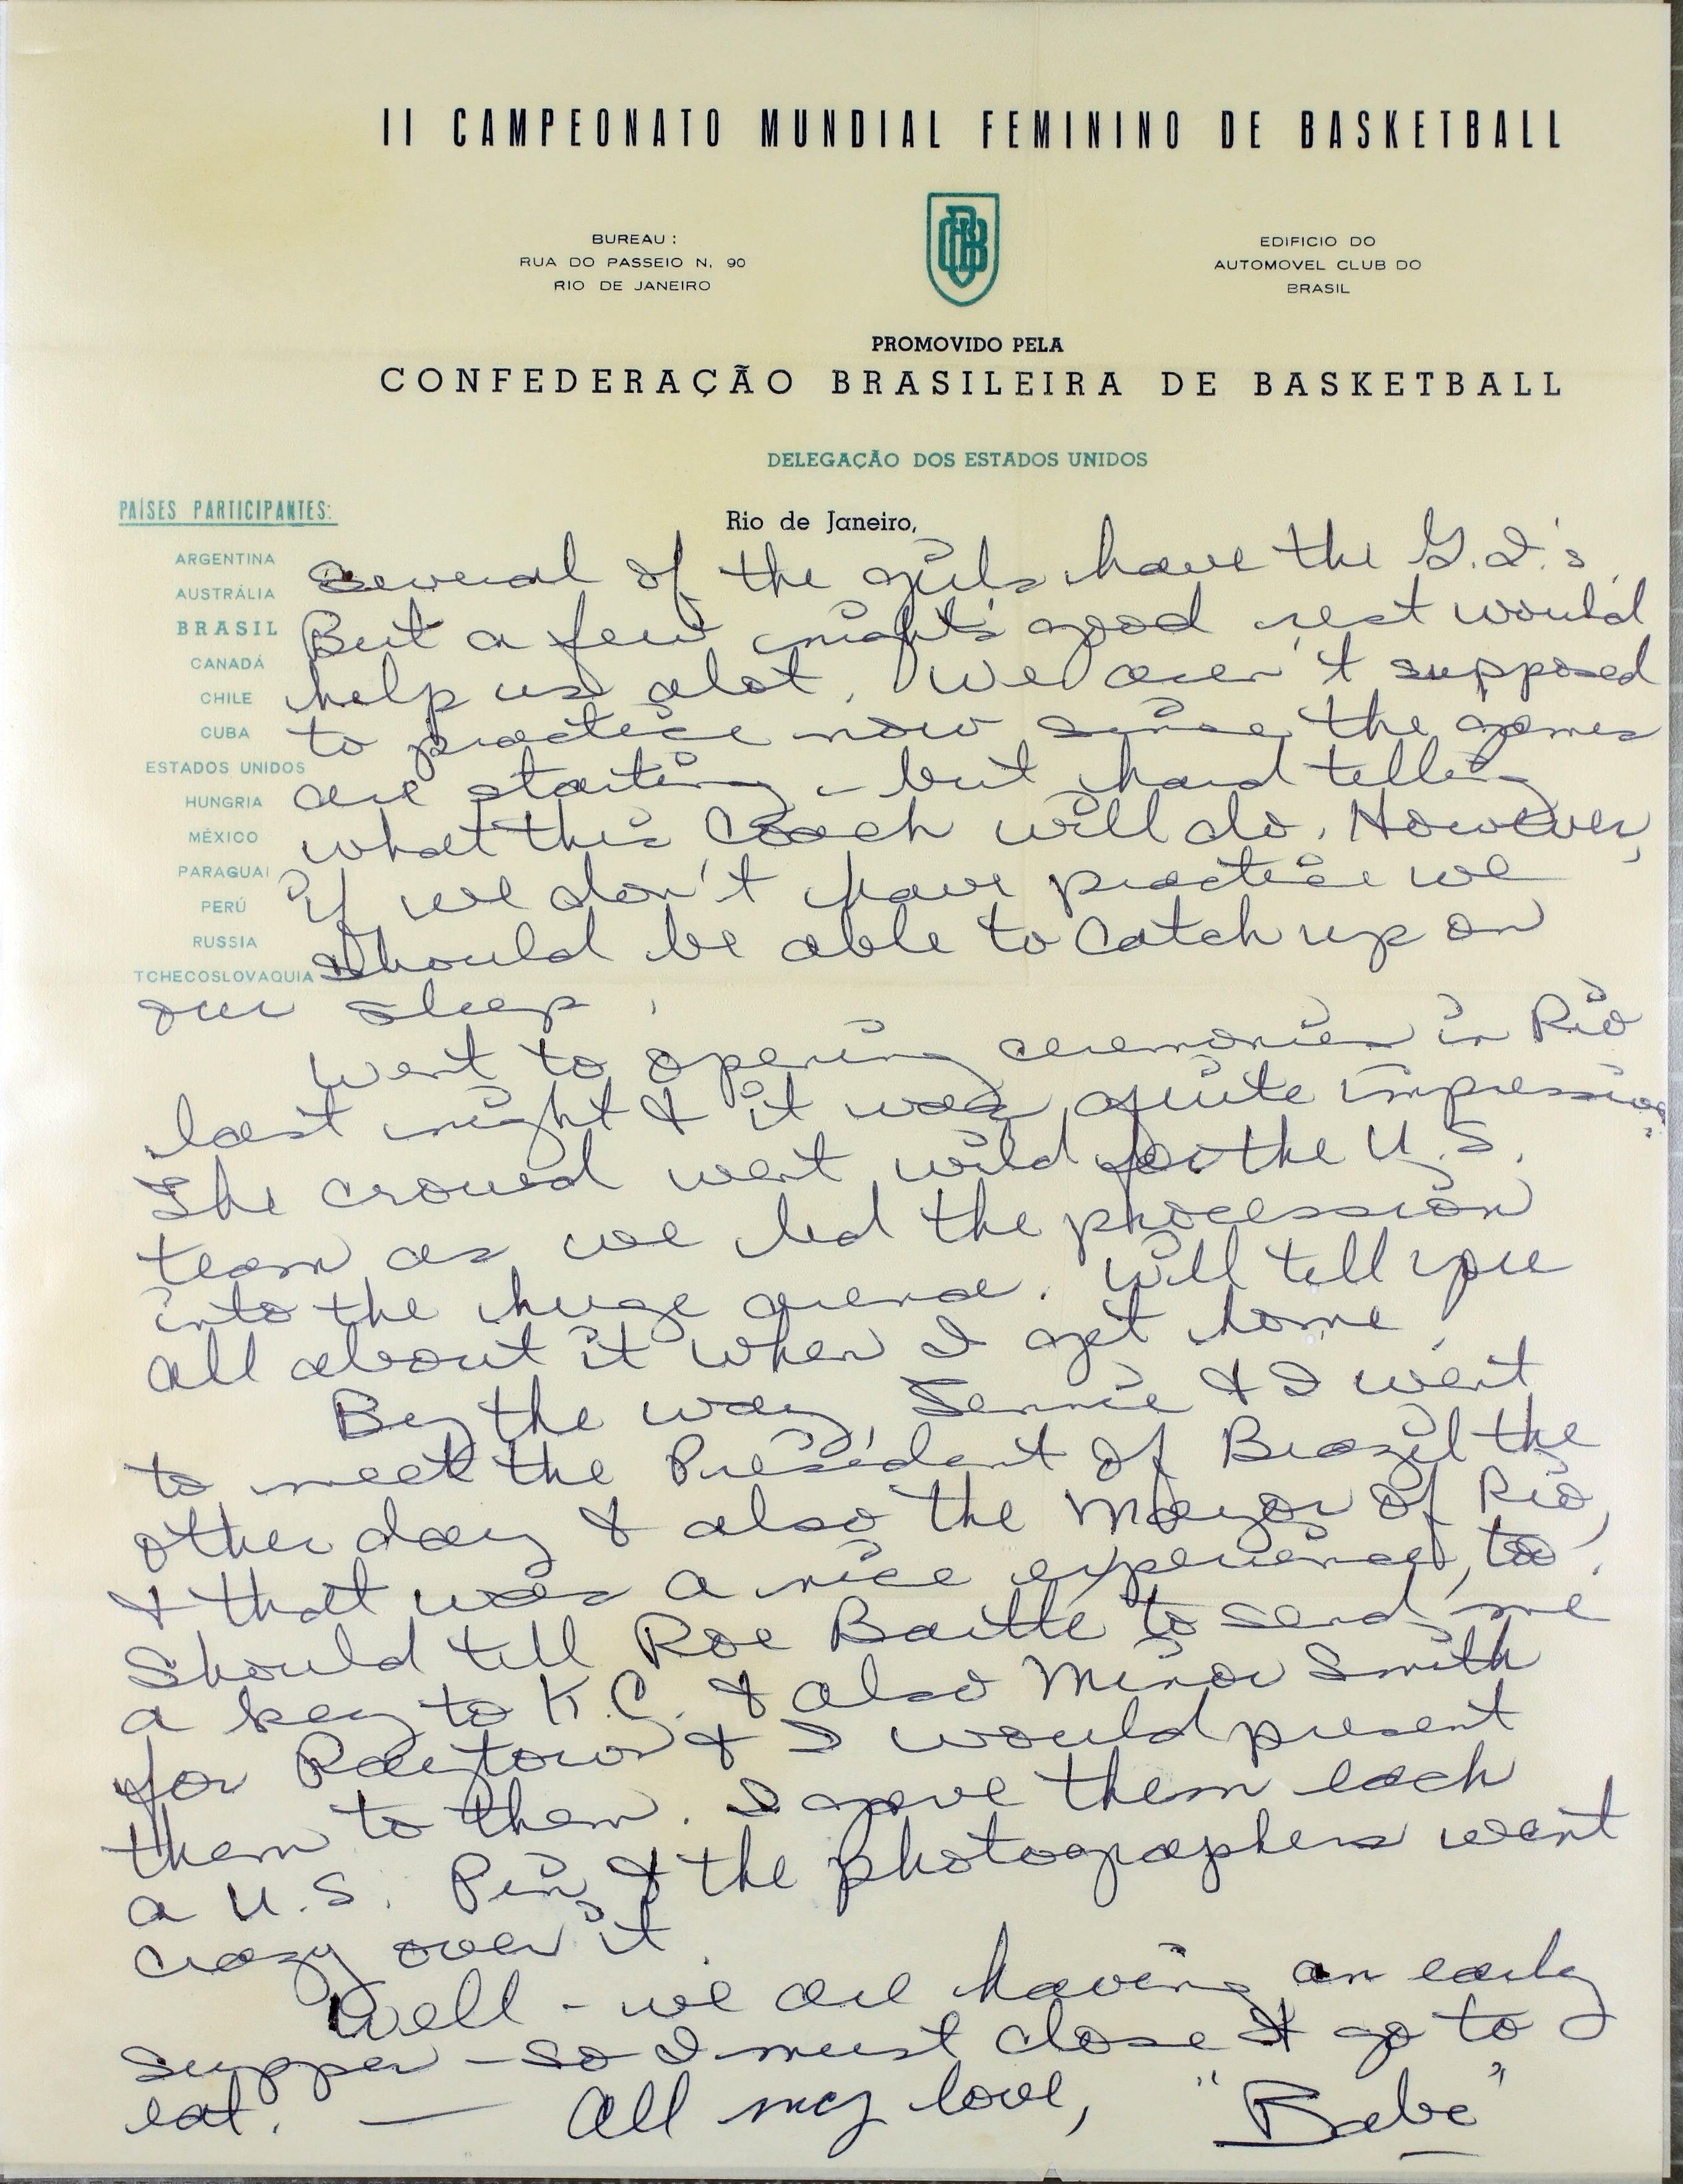 II CAMPEONATO MUNDIAL FEMININO DE BASKETBALL
BUREAU :
RUA DO PASSEIO N. 90
RIO DE JANEIRO
CBB
EDIFICIO DO
AUTOMOVEL CLUB DO
BRASIL
PROMOVIDO PELA
CONFEDERAÇÃO BRASILEIRA DE BASKETBALL
DELEGAÇÃO DOS ESTADOS UNIDOS
PAÍSES PARTICIPANTES:
ARGENTINA
AUSTRÁLIA
BRASIL
CANADÁ
CHILE
CUBA
ESTADOS UNIDOS
HUNGRIA
MÉXICO
PARAGUAI
PERÚ
RUSSIA
TCHECOSLOVAQUIA
Rio de Janeiro,
Several of the girls have the G.I.'s.
But a few night's good rest would
help us alot. We aren't supposed
to practice now since the games
are starting - but hard telling
what this Coach will do. However,
if we don't have practice we
should be able to catch up on
our sleep.
Went to opening ceremonies in Rio
last night & it was quite impressive.
The crowd went wild for the U.S.
team as we led the procession
into the huge arena. Will tell you
all about it when I get home.
By the way, Jennie & I went
to meet the President of Brazil the
other day & also the Mayor of Rio,
& that was a nice experience, too.
Should tell Roe Bartle to send me
a key to K.C. & also Minor Smith
for Raytown & I would present
them to them. I gave them each
a U.S. Pin & the photographers went
crazy over it.
Well - we are having an early
supper - so I must close & go to
eat. — All my love, "Babe"